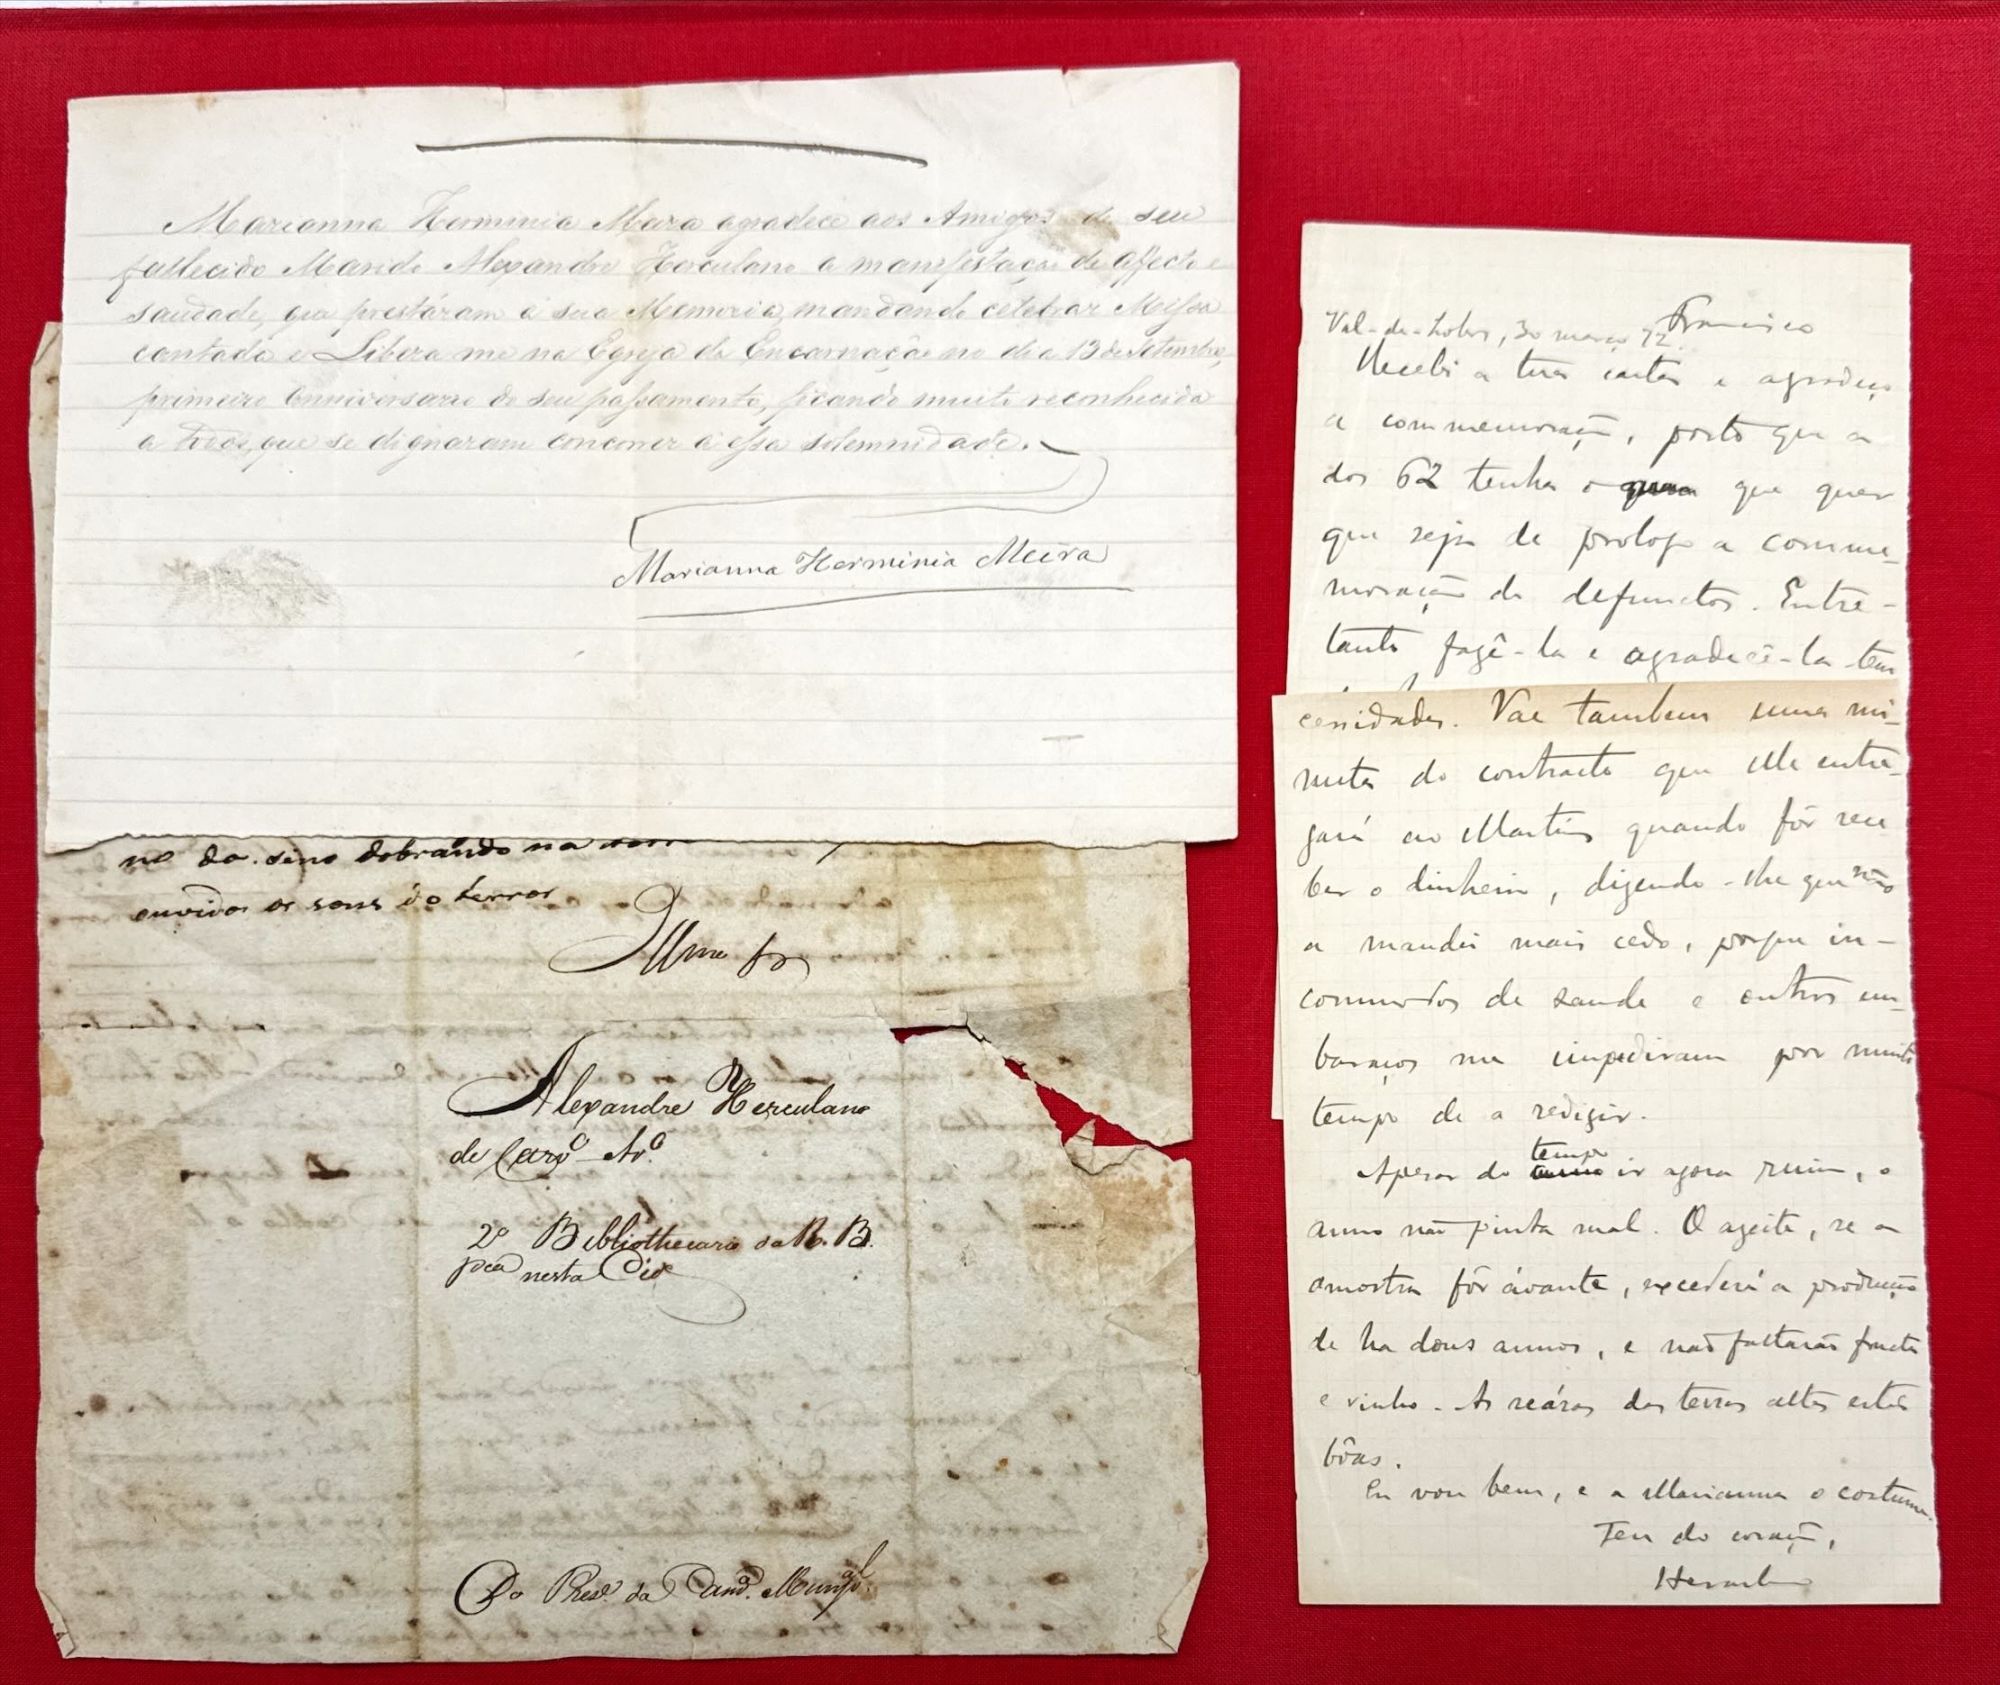 Marianna Herminia Meira agradece aos Amigos de seu
fallecido Marido Alexandre Herculano a manifestação de affecto e
saudade, que prestáram á sua Memoria, mandando celebrar Missa
cantada e Libera me na Egreja da Encarnação no dia 13 de Setembro,
primeiro Anniversario do seu passamento, ficando muito reconhecida
a todos, que se dignaram concorrer a essa solemnidade.
Marianna Herminia Meira
no do sino dobrando na
ouvidos os sons do terror
Illmo Sr
Alexandre Herculano
de Carvo Aro
2º Bibliothecario da R. B.
pca nesta Cide
Do Preste da Camª Munipal
Val-de-Lobos, 30 março 72.
Francisco
Recebi a tua carta e agradeço
a commemoração, posto que a
dos 62 tenha o que quer
que seja de prologo a comme-
moração de defunctos. Entre-
tanto fazê-la e agradecê-la tem
cessidades. Vae tambem uma mi-
nuta do contracto que elle entre-
gará ao Martins quando fôr rece
ber o dinheiro, dizendo-lhe que não
a mandei mais cedo, porque in-
commodos de saude e outros em-
baraços me impediram por muito
tempo de a redigir.
Apesar do tempo ir agora ruim, o
anno não pinta mal. O azeite, se a
amostra fôr ávante, excederá a producção
de ha dous annos, e não faltarão fructa
e vinho. As seáras das terras altas estão
bôas.
Eu vou bem, e a Marianna o costume.
Teu do coração,
Herculano